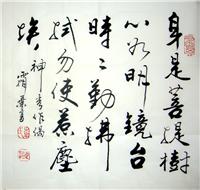 身是菩提樹
心如明鏡台
時二勤拂
拭勿使惹塵
埃
神秀作偈